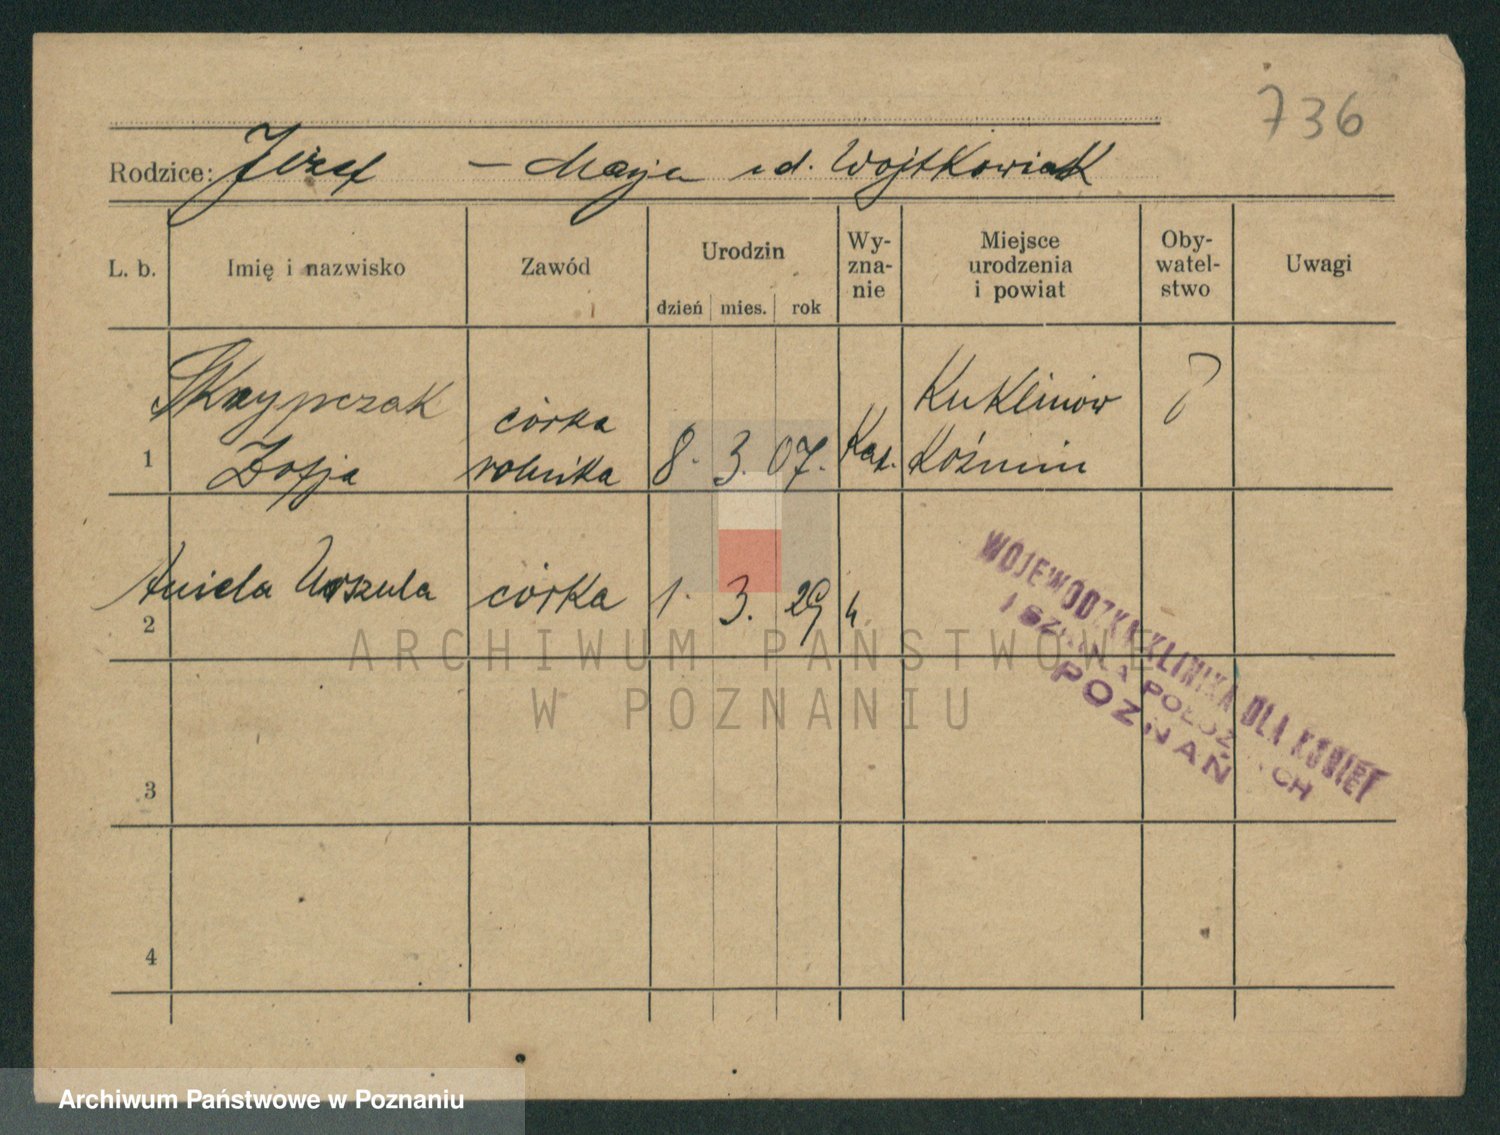 736
Rodzice: Józef — Marja z d. Wojtkowiak
L. b.
Imię i nazwisko
Zawód
Urodzin
dzień mies. rok
Wy-
zna-
nie
Miejsce
urodzenia
i powiat
Oby-
watel-
stwo
Uwagi
1
Skrzypczak
Zofja
córka
rolnika
8. 3. 07.
Kat.
Kuklinów
Koźmin
P
2
Aniela Urszula
córka
1. 3. 29
k.
WOJEWÓDZKA KLINIKA DLA KOBIET
I SZKOŁA POŁOŻNYCH
POZNAŃ
3
4
ARCHIWUM PAŃSTWOWE
W POZNANIU
Archiwum Państwowe w Poznaniu